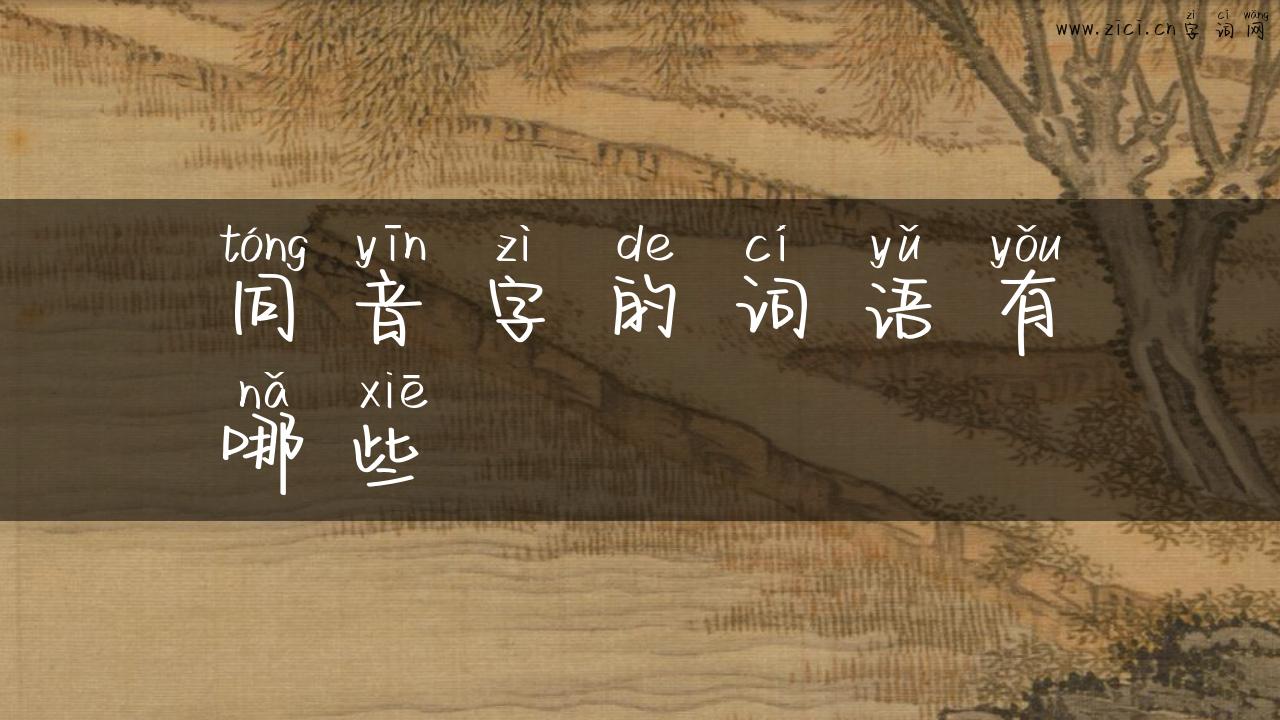 zì cí wǎng
www.zici.cn字词网
tóng yīn zì de cí yǔ yǒu
同音字的词语有
nǎ xiē
哪些